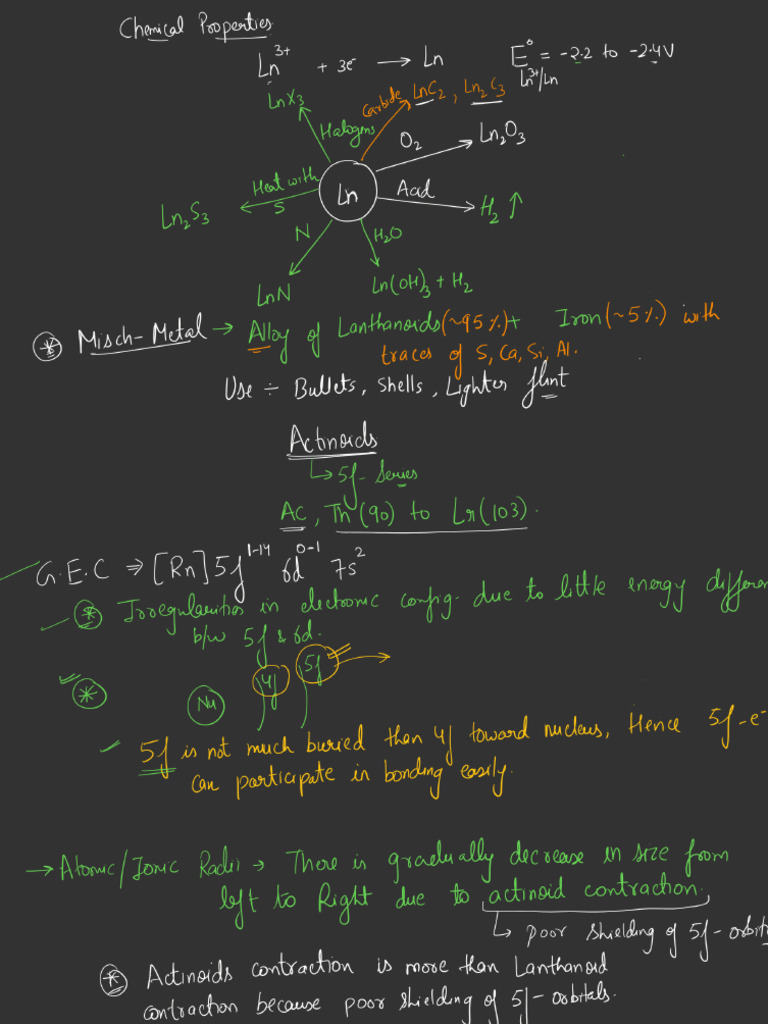 Chemical Properties
Ln3+ + 3e⁻ → Ln E° Ln3+/Ln = -2.2 to -2.4V
LnX3
Halogens
Carbide LnC2, Ln2C3
O2 Ln2O3
Heat with S
Ln2S3
Ln
Acid H2 ↑
N
LnN
H2O
Ln(OH)3 + H2
* Misch-Metal → Alloy of Lanthanoids (~95%) + Iron (~5%) with
traces of S, Ca, Si, Al.
Use ÷ Bullets, Shells, Lighter flint
Actinoids
↳ 5f- Series
Ac, Th(90) to Lr(103).
G.E.C ⇒ [Rn] 5f1-14 6d0-1 7s2
* Irregularities in electronic config. due to little energy differen
b/w 5f & 6d.
* Nu 4f 5f
5f is not much buried than 4f toward nucleus, Hence 5f-e⁻
can participate in bonding easily.
→ Atomic/Ionic Radii → There is gradually decrease in size from
left to Right due to actinoid contraction.
↳ poor shielding of 5f-orbit
* Actinoids contraction is more than Lanthanoid
contraction because poor shielding of 5f-orbitals.